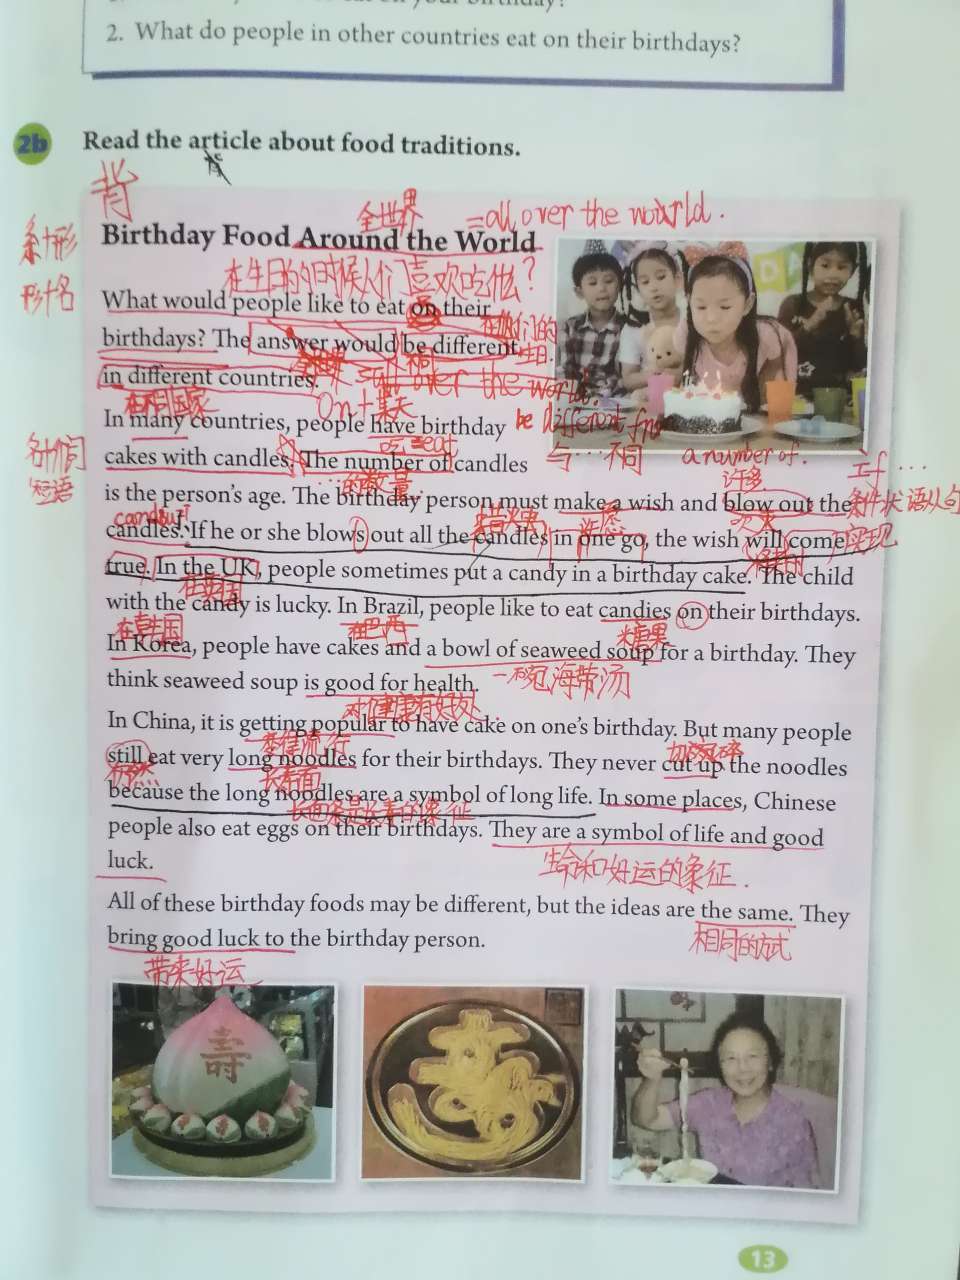 2. What do people in other countries eat on their birthdays?
2b Read the article about food traditions.
背
全世界 =all over the world.
Birthday Food Around the World
在生日的时候人们喜欢吃什么?
What would people like to eat on their
在他们的生日.
birthdays? The answer would be different
不同
in different countries.
all over the world.
在不同国家
on+某天
be different from
In many countries, people have birthday
吃=eat
与…不同
a number of.
许多
If…
条件状语从句
cakes with candles. The number of candles
…的数量
is the person's age. The birthday person must make a wish and blow out the
名介词
短语
吹灭
candles. If he or she blows out all the candles in one go, the wish will come
实现
true. In the UK, people sometimes put a candy in a birthday cake. The child
在英国
with the candy is lucky. In Brazil, people like to eat candies on their birthdays.
在韩国
在巴西
糖果
In Korea, people have cakes and a bowl of seaweed soup for a birthday. They
think seaweed soup is good for health.
一碗海带汤
对健康有好处.
In China, it is getting popular to have cake on one's birthday. But many people
变得流行
still eat very long noodles for their birthdays. They never cut up the noodles
仍然
长寿面
because the long noodles are a symbol of long life. In some places, Chinese
长面条是长寿的象征
people also eat eggs on their birthdays. They are a symbol of life and good
luck.
生命和好运的象征.
All of these birthday foods may be different, but the ideas are the same. They
相同的方式
bring good luck to the birthday person.
带来好运
壽
13